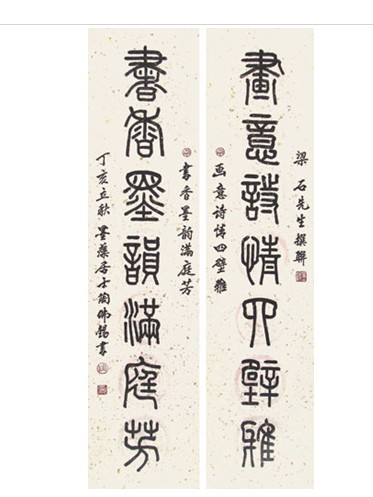 梁石先生撰聯
畫意詩情四壁雅
画意诗情四壁雅
書香墨韻滿庭芳
書香墨韵滿庭芳
丁亥立秋墨藻居士陶佛錫書